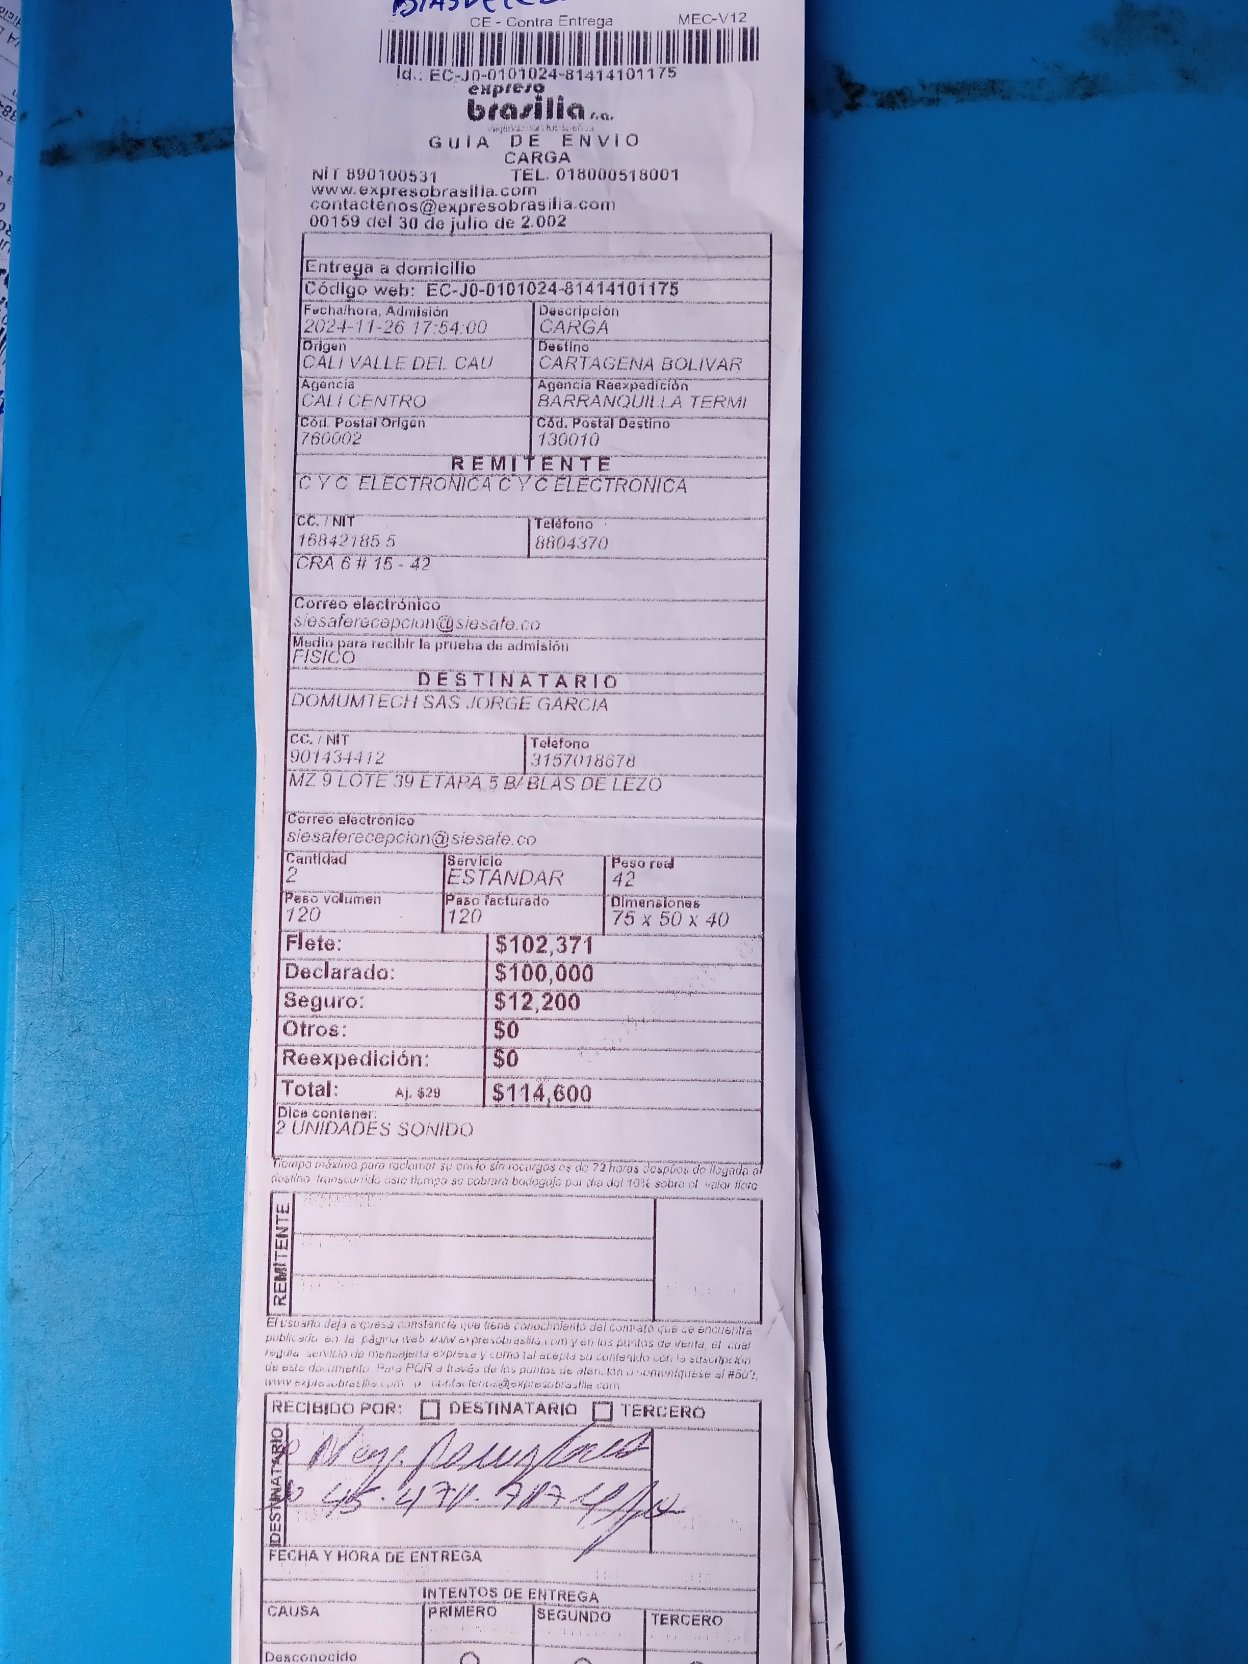 CE - Contra Entrega MEC-V12
Id.: EC-J0-0101024-81414101175
expreso
brasilia s.a.
GUIA DE ENVIO
CARGA
NIT 890100531 TEL. 018000518001
www.expresobrasilia.com
contactenos@expresobrasilia.com
00159 del 30 de julio de 2.002
Entrega a domicilio
Código web: EC-J0-0101024-81414101175
Fecha/hora, Admisión Descripción
2024-11-26 17:54:00 CARGA
Origen Destino
CALI VALLE DEL CAU CARTAGENA BOLIVAR
Agencia Agencia Reexpedición
CALI CENTRO BARRANQUILLA TERMI
Cód. Postal Origen Cód. Postal Destino
760002 130010
REMITENTE
C Y C ELECTRONICA C Y C ELECTRONICA
CC. / NIT Teléfono
16842185 5 8804370
CRA 6 # 15 - 42
Correo electrónico
siesaferecepcion@siesafe.co
Medio para recibir la prueba de admisión
FISICO
DESTINATARIO
DOMUMTECH SAS JORGE GARCIA
CC. / NIT Teléfono
901434412 3157018678
MZ 9 LOTE 39 ETAPA 5 B/ BLAS DE LEZO
Correo electrónico
siesaferecepcion@siesafe.co
Cantidad Servicio Peso real
2 ESTANDAR 42
Peso volumen Peso facturado Dimensiones
120 120 75 x 50 x 40
Flete: $102,371
Declarado: $100,000
Seguro: $12,200
Otros: $0
Reexpedición: $0
Total: Aj. $29 $114,600
Dice contener:
2 UNIDADES SONIDO
Tiempo máximo para reclamar su envío sin recargos es de 72 horas después de llegada al
destino, transcurrido este tiempo se cobrará bodegaje por día del 10% sobre el valor flete
REMITENTE
El usuario deja expresa constancia que tiene conocimiento del contrato que se encuentra
publicado en la página web www.expresobrasilia.com y en los puntos de venta, el cual
regula servicio de mensajería expresa y como tal acepta su contenido con la suscripción
de este documento. Para PQR a través de los puntos de atención o comuníquese al
www.expresobrasilia.com o contactenos@expresobrasilia.com
RECIBIDO POR: DESTINATARIO TERCERO
DESTINATARIO
FECHA Y HORA DE ENTREGA
INTENTOS DE ENTREGA
CAUSA PRIMERO SEGUNDO TERCERO
Desconocido